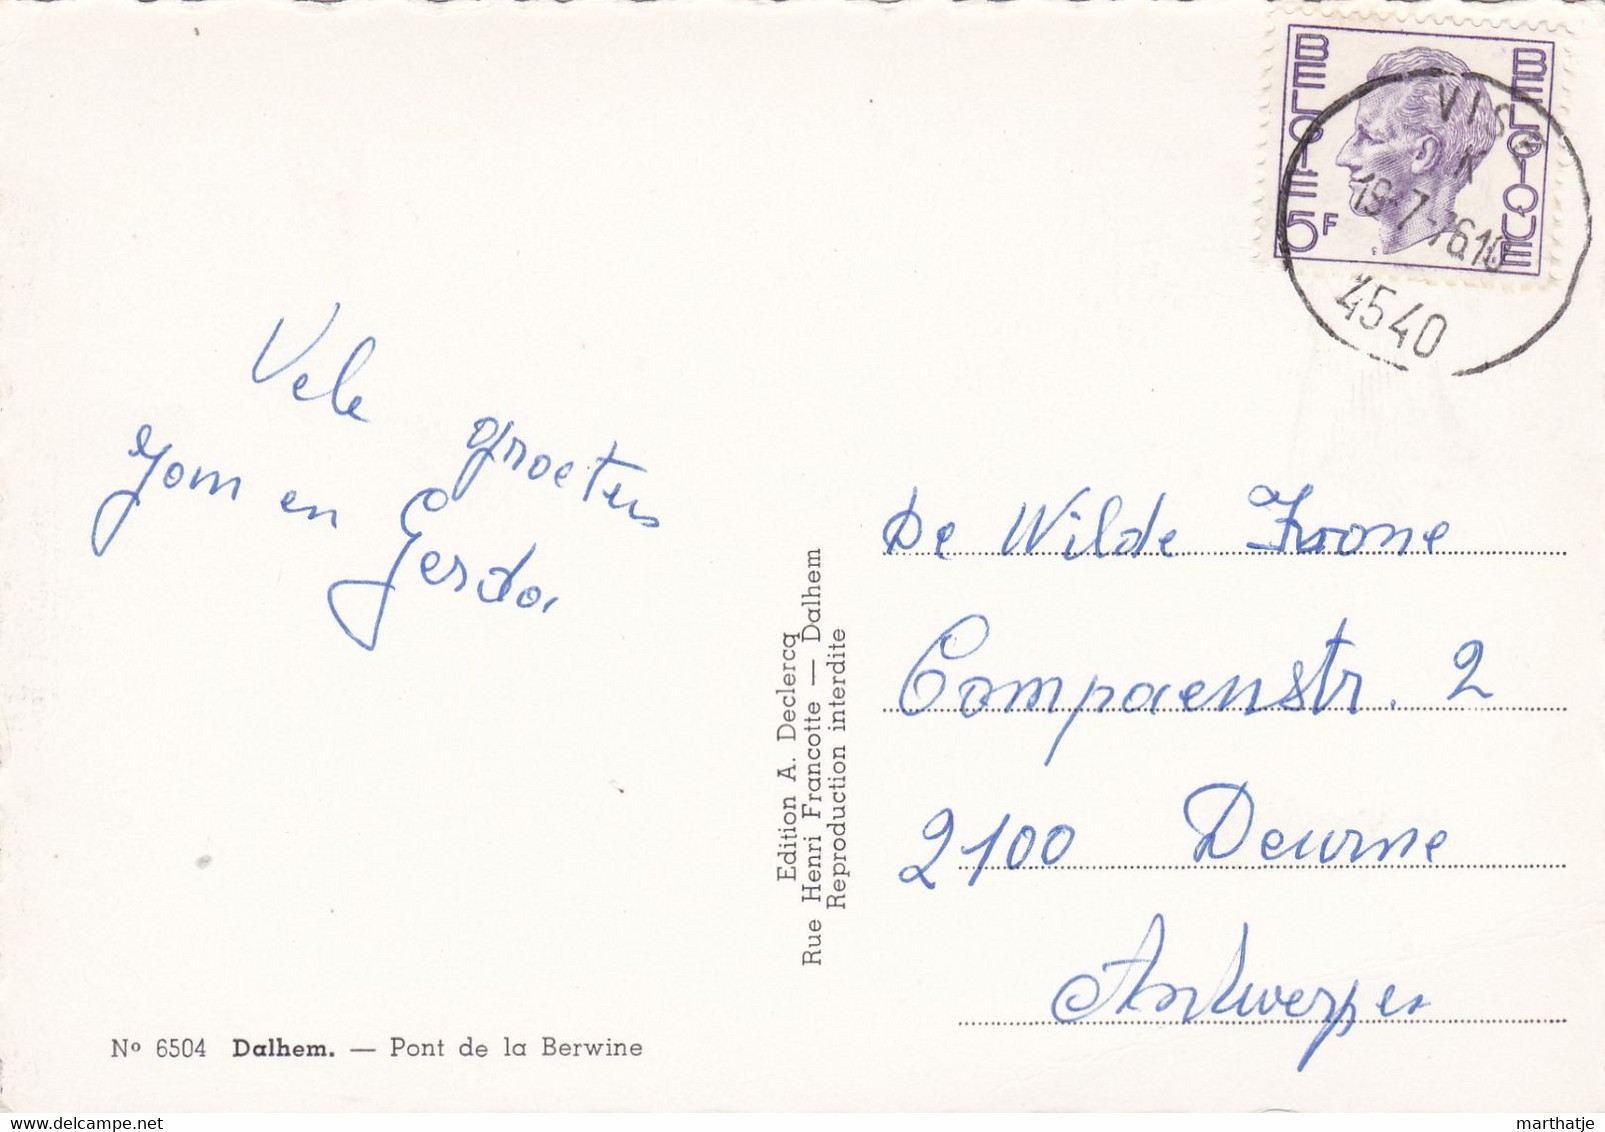 BELGIE
5F
BELGIQUE
VISE
K
19-7-76 10
4540
Vele groeten
Jom en Gerda
De Wilde Ivonne
Compaenstr. 2
2100 Deurne
Antwerpen
Edition A. Declercq
Rue Henri Francotte — Dalhem
Reproduction interdite
Nº 6504 Dalhem. — Pont de la Berwine
marthatje